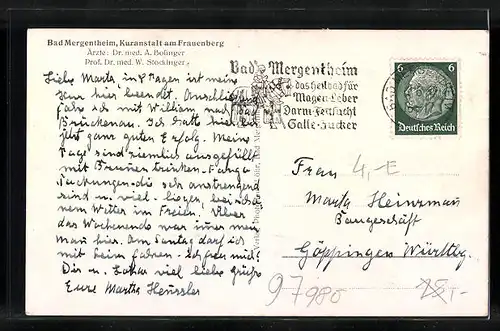 Bad Mergentheim, Kuranstalt am Frauenberg
Ärzte: Dr. med. A. Bofinger
Prof. Dr. med. W. Stockinger
Liebe Marta in 8 Tagen ist meine
Kur hier beendet. Anschließend
fahre ich mit William nach Bad
Brückenau. Ich hatte hier bis
jetzt ganz guten Erfolg. Meine
Tage sind ziemlich ausgefüllt
mit Brunnen trinken - Fango
Packungen - die sehr anstrengend
sind u. viel liegen, bei schö-
nem Wetter im Freien. Über
das Wochenende war immer mein
Mann hier. Am Sonntag darf ich
mit heim fahren -
Dir u. viel liebe Grüße
Eure Martha Heussler
Bad Mergentheim
das Heilbad für
Magen Leber
Darm Fettsucht
Galle Zucker
6 6
Deutsches Reich
4,-E
Frau
Marta Heinzmann
Baugeschäft
Göppingen Württbg.
97980
18,-